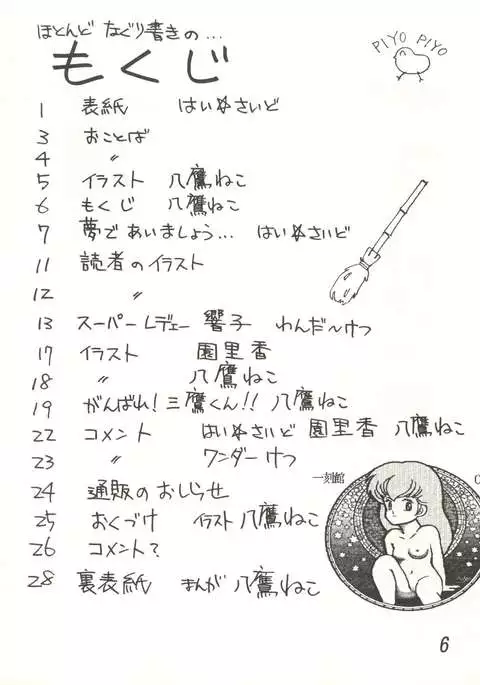 ほとんど なぐり書きの...
もくじ
PIYO PIYO
1 表紙 はい☆さいど
3 おことば
4 〃
5 イラスト 八鷹ねこ
6 もくじ 八鷹ねこ
7 夢であいましょう... はい☆さいど
11 読者のイラスト
12 〃
13 スーパーレデェー 響子 わんだ〜けつ
17 イラスト 園里香
18 〃 八鷹ねこ
19 がんばれ!三鷹くん!! 八鷹ねこ
22 コメント はい☆さいど 園里香 八鷹ねこ
23 〃 ワンダーけつ
24 通販のおしらせ
25 おくづけ イラスト 八鷹ねこ
26 コメント?
28 裏表紙 まんが 八鷹ねこ
一刻館
6